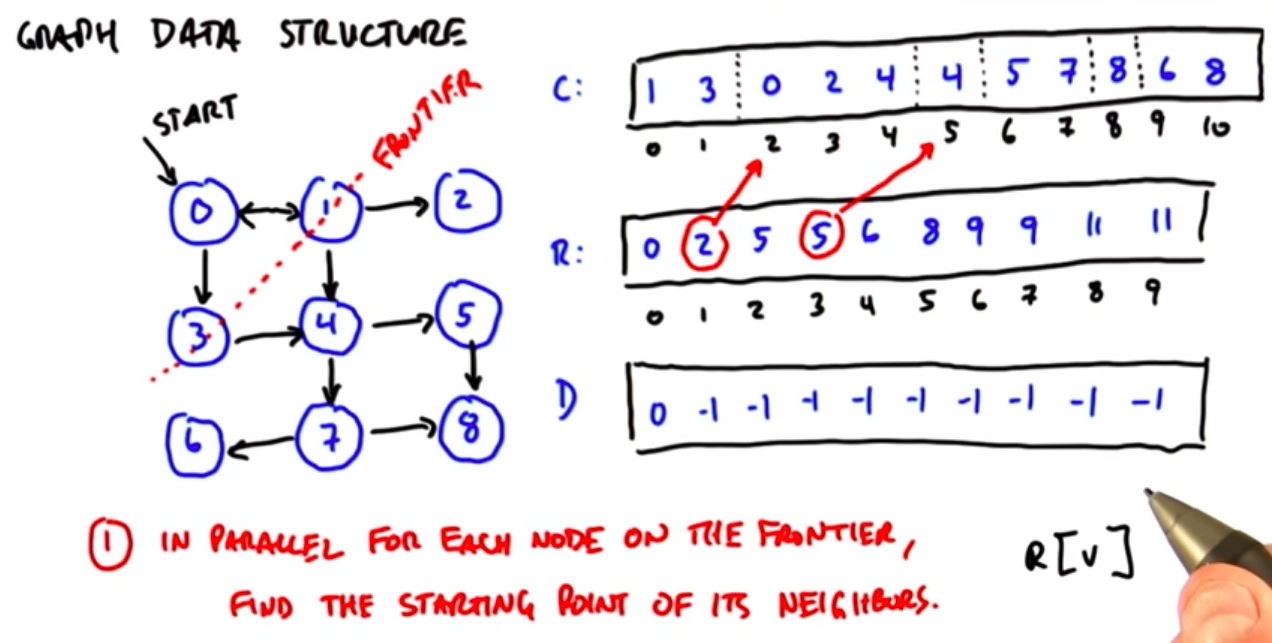 GRAPH DATA STRUCTURE
START
FRONTIER
0 1 2
3 4 5
6 7 8
C: 1 3 0 2 4 4 5 7 8 6 8
0 1 2 3 4 5 6 7 8 9 10
R: 0 2 5 5 6 8 9 9 11 11
0 1 2 3 4 5 6 7 8 9
D 0 -1 -1 -1 -1 -1 -1 -1 -1 -1
1 IN PARALLEL FOR EACH NODE ON THE FRONTIER,
FIND THE STARTING POINT OF ITS NEIGHBORS.
R[V]